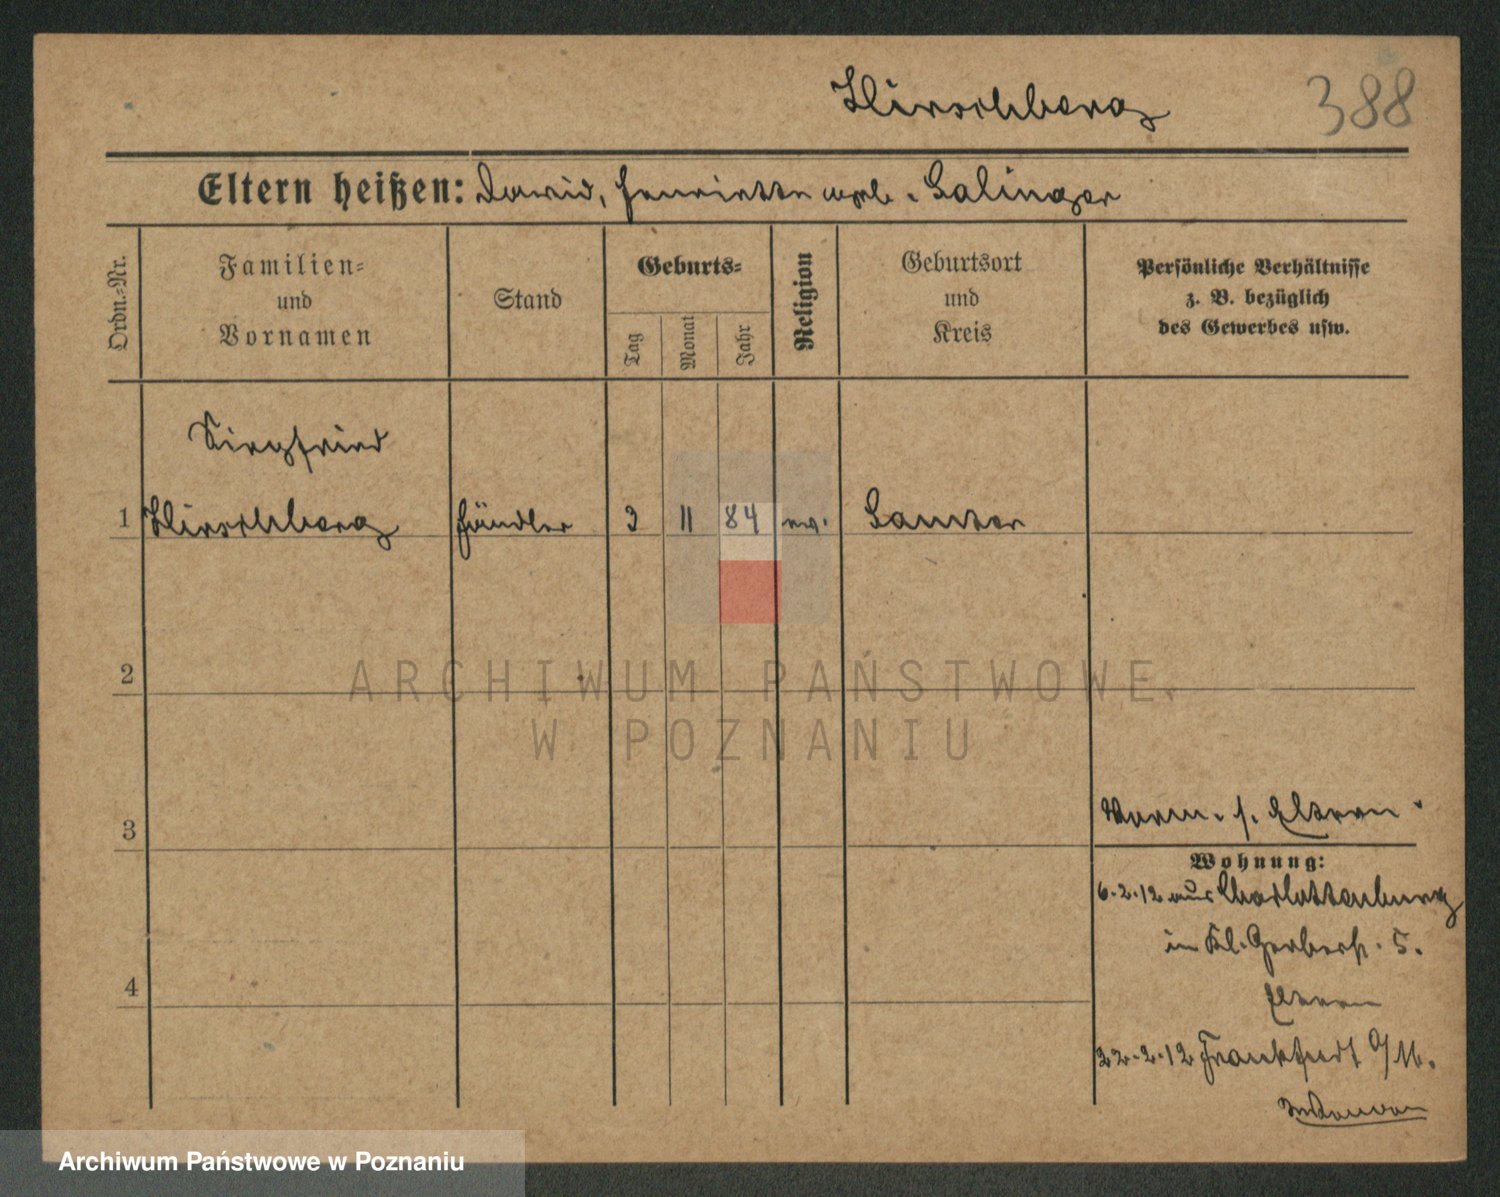 Hirschberg
388
Eltern heißen: David, Henriette geb. Salinger
Ordn.=Nr.
Familien=
und
Vornamen
Stand
Geburts=
Tag
Monat
Jahr
Religion
Geburtsort
und
Kreis
Persönliche Verhältnisse
z. B. bezüglich
des Gewerbes usw.
Siegfried
1 Hirschberg Händler 3 11 84 Samter
2
3
4
Verm. s. Eltern
Wohnung:
6.2.12 aus Charlottenburg
in Kl. Gerberst. 5.
Eltern
22.2.12 Frankfurt a/M.
ARCHIWUM PAŃSTWOWE
W POZNANIU
Archiwum Państwowe w Poznaniu